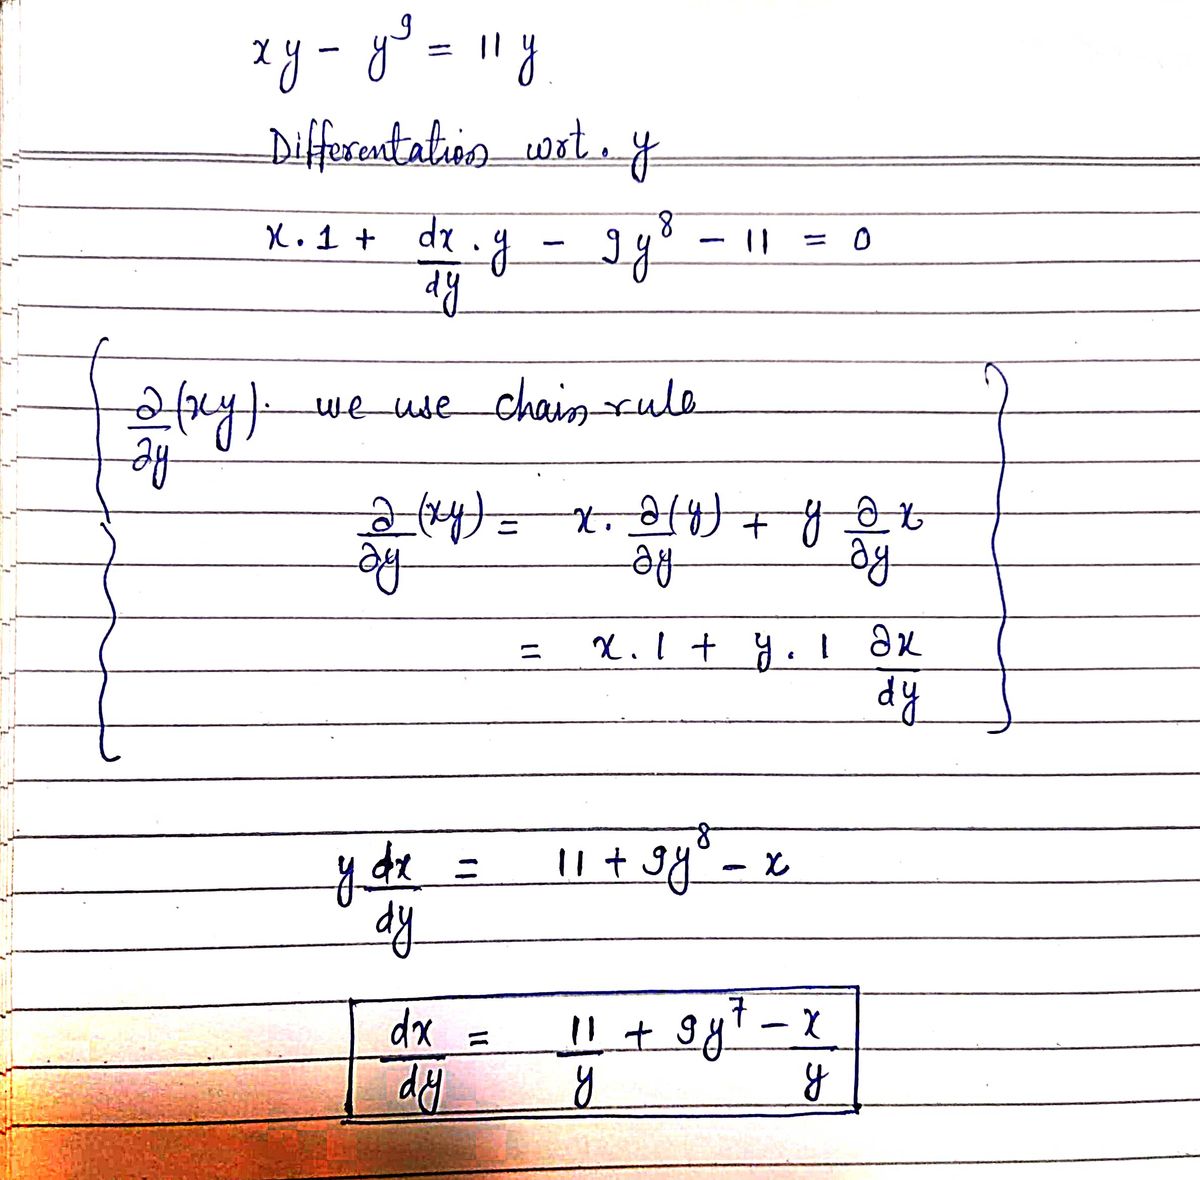 xy - y⁹ = 11y
Differentation wrt. y
x.1 + dx/dy . y - 9y⁸ - 11 = 0
∂/∂y (xy). we use chain rule
∂/∂y (xy) = x. ∂(y)/∂y + y ∂/∂y x
= x.1 + y.1 ∂x/dy
y dx/dy = 11 + 9y⁸ - x
dx/dy = 11/y + 9y⁷ - x/y